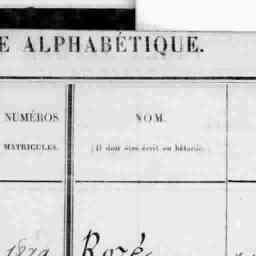 E ALPHABÉTIQUE.
NUMÉROS
MATRICULES.
NOM.
(Il doit être écrit en bâtarde.)
1879
Rozé